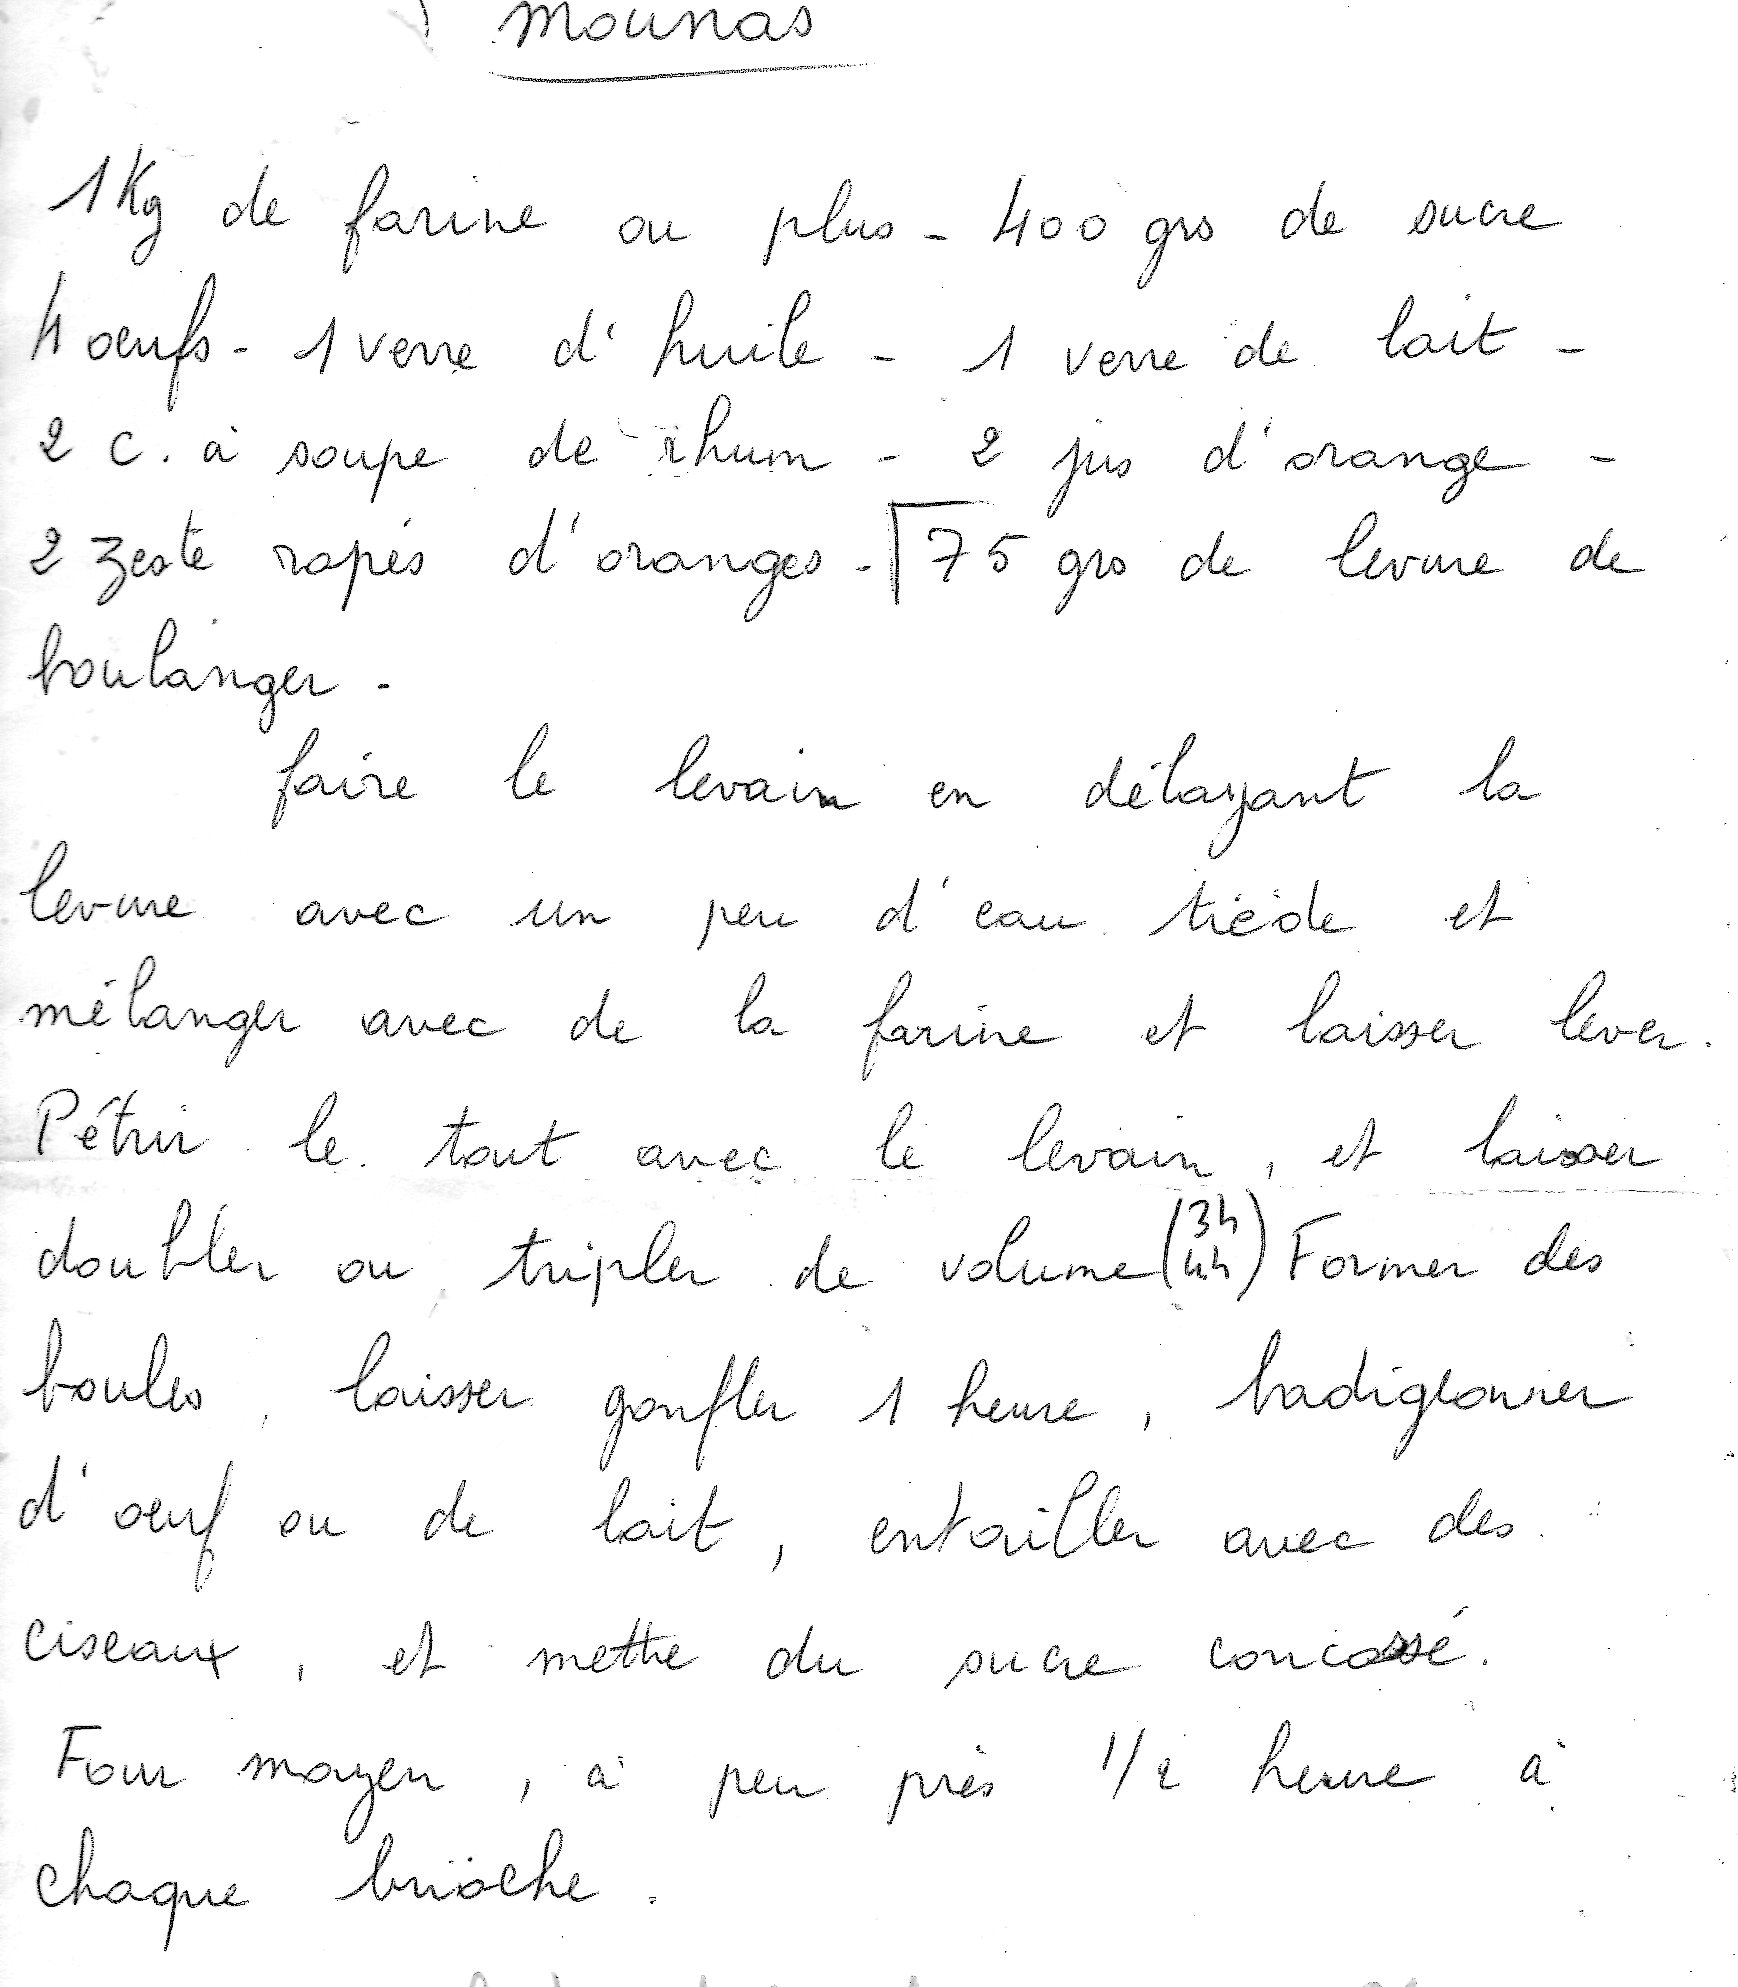 mounas
1Kg de farine ou plus - 400 grs de sucre
4 oeufs - 1 verre d'huile - 1 verre de lait -
2 c. à soupe de rhum - 2 jus d'orange -
2 zeste rapés d'oranges - 75 grs de levure de
boulanger -
faire le levain en délayant la
levure avec un peu d'eau tiède et
mélanger avec de la farine et laisser lever.
Pétrir le tout avec le levain, et laisser
doubler ou tripler de volume (3h 4h) Former des
boules, laisser gonfler 1 heure, badigeonner
d'oeuf ou de lait, entailler avec des
ciseaux, et mettre du sucre concassé.
Four moyen, à peu près 1/2 heure à
chaque brioche.